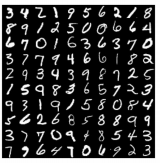 3 4 2 1 9 5 6 2 1 8
8 9 1 2 5 0 0 6 6 4
6 7 0 1 6 3 6 3 7 0
3 7 7 9 4 6 6 1 8 2
2 9 3 4 3 9 8 7 2 5
1 5 9 8 3 6 5 7 2 3
9 3 1 9 1 5 8 0 8 4
5 6 2 6 8 5 8 8 9 9
3 7 7 0 9 4 8 5 4 3
7 9 6 4 7 0 6 9 2 3